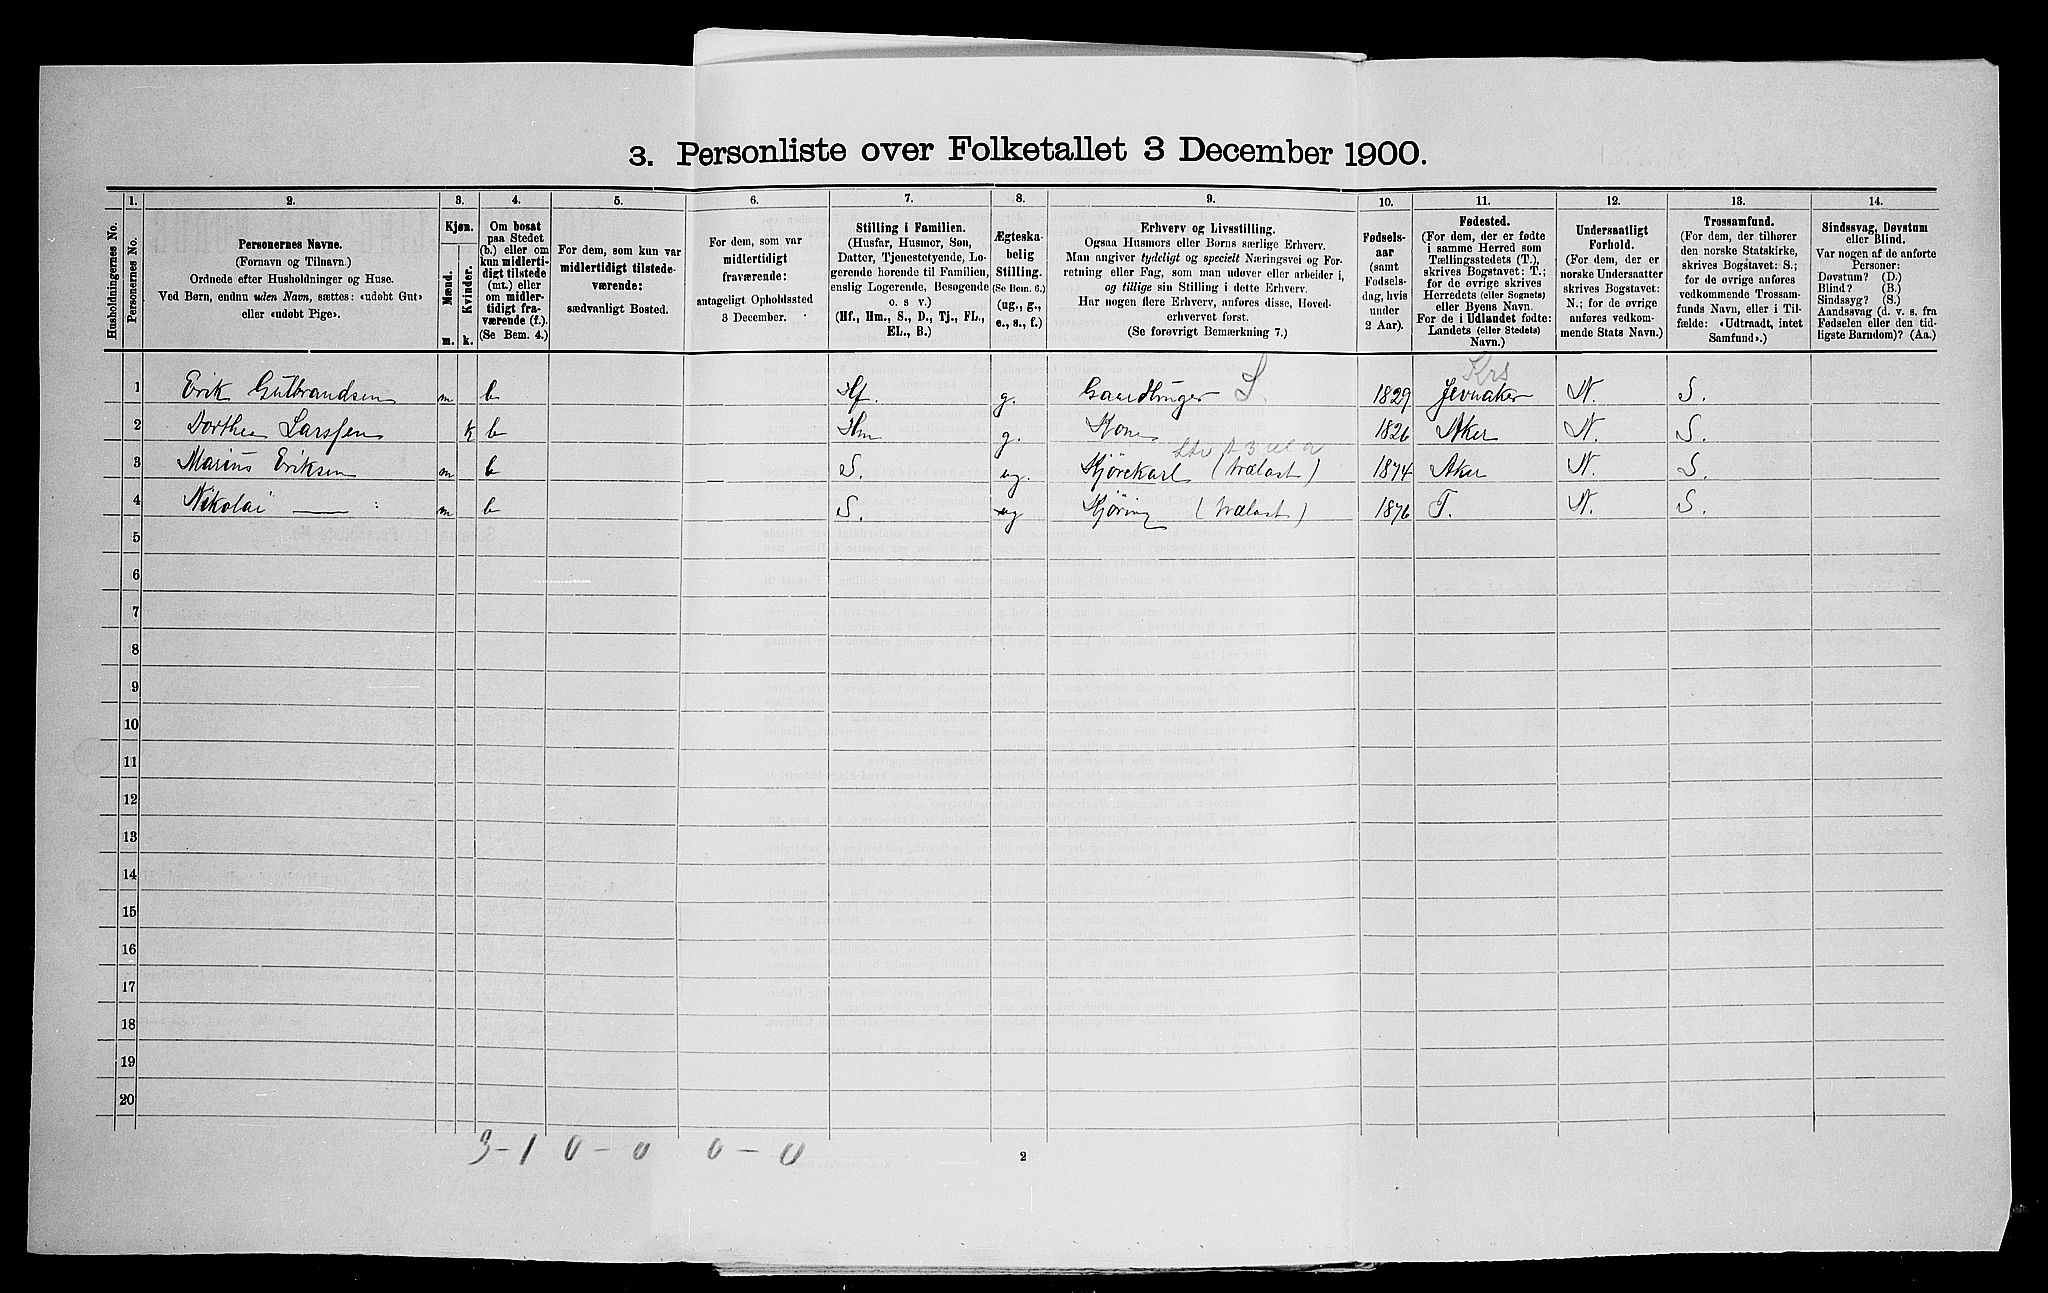 3. Personliste over Folketallet 3 December 1900.
1. 2. 3. 4. 5. 6. 7. 8. 9. 10. 11. 12. 13. 14.
Husholdningernes No.
Personernes No.
Personernes Navne.
(Fornavn og Tilnavn.)
Ordnede efter Husholdninger og Huse.
Ved Børn, endnu uden Navn, sættes: «udøbt Gut»
eller «udøbt Pige».
Kjøn.
Mænd.
Kvinder.
m. k.
Om bosat
paa Stedet
(b.) eller om
kun midlerti-
digt tilstede
(mt.) eller
om midler-
tidigt fra-
værende (f.).
(Se Bem. 4.)
For dem, som kun var
midlertidigt tilstede-
værende:
sædvanligt Bosted.
For dem, som var
midlertidigt
fraværende:
antageligt Opholdssted
3 December.
Stilling i Familien.
(Husfar, Husmor, Søn,
Datter, Tjenestetyende, Lo-
gerende hørende til Familien,
enslig Logerende, Besøgende
o. s. v.)
(Hf., Hm., S., D., Tj., FL.,
EL., B.)
Ægteska-
belig
Stilling.
(Se Bem. 6.)
(ug., g.,
e., s., f.)
Erhverv og Livsstilling.
Ogsaa Husmors eller Børns særlige Erhverv.
Man angiver tydeligt og specielt Næringsvei og For-
retning eller Fag, som man udøver eller arbeider i,
og tillige sin Stilling i dette Erhverv.
Har nogen flere Erhverv, anføres disse, Hoved-
erhvervet først.
(Se forøvrigt Bemærkning 7.)
Fødsels-
aar
(samt
Fødsels-
dag, hvis
under
2 Aar).
Fødested.
(For dem, der er fødte
i samme Herred som
Tællingsstedets (T.),
skrives Bogstavet: T.;
for de øvrige skrives
Herredets (eller Sognets)
eller Byens Navn.
For de i Udlandet fødte:
Landets (eller Stedets)
Navn.)
Undersaatligt
Forhold.
(For dem, der er
norske Undersaatter
skrives Bogstavet:
N.; for de øvrige
anføres vedkom-
mende Stats Navn.)
Trossamfund.
(For dem, der tilhører
den norske Statskirke,
skrives Bogstavet: S.;
for de øvrige anføres
vedkommende Trossam-
funds Navn, eller i Til-
fælde: «Udtraadt, intet
Samfund».)
Sindssvag, Døvstum
eller Blind.
Var nogen af de anførte
Personer:
Døvstum? (D.)
Blind? (B.)
Sindssyg? (S.)
Aandssvag (d. v. s. fra
Fødselen eller den tid-
ligste Barndom)? (Aa.)
Krs
1 Erik Gulbrandsen m b Hf. g. Gaardbruger S. 1829 Jevnaker N. S.
2 Dorthea Larssen k b Hm g. Kone 1826 Aker N. S.
3 Marius Eriksen m b S. ug. Kjørekarl (trælast) 1874 Aker N. S.
4 Nikolai —— m b S. ug Kjøring (trælast) 1876 T. N. S.
5
6
7
8
9
10
11
12
13
14
15
16
17
18
19
20
3-1 0-0 0-0
2